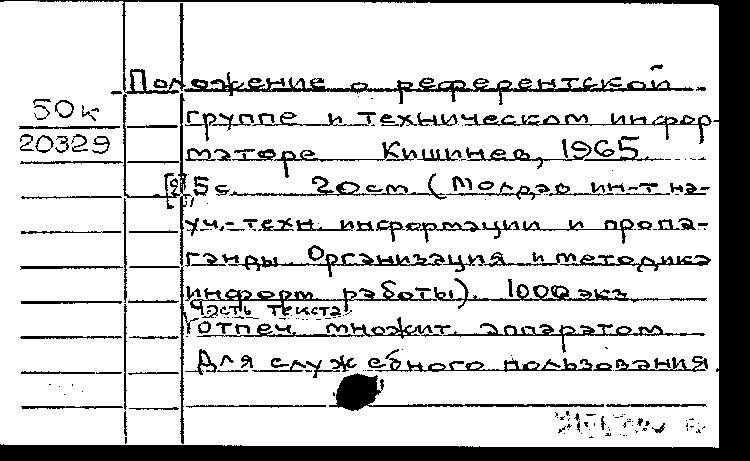 Положение о референтской
50к
группе и техническом инфор-
20329
маторе Кишинев, 1965.
5с. 20см (Молдав ин-т на-
уч.-техн. информации и пропа-
ганды. Организация и методика
информ. работы). 1000 экз.
Часть текста
отпеч. множит. аппаратом
Для служебного пользования.